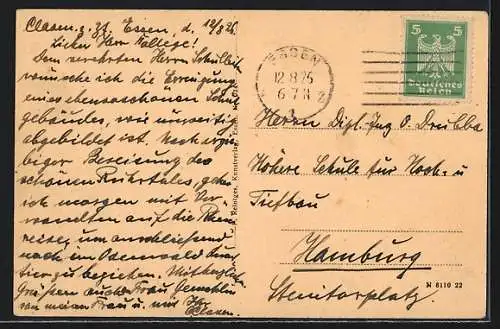 Clasen, z. Zt. Essen, d. 12/8. 25.
Lieber Herr Kollege!
Dem verehrten Herrn Schulleiter
wünsche ich die Erringung
eines ebensoschönen Schul
gebäudes, wie umseitig
abgebildet ist. Nach
biger Bereisung des
schönen Ruhrtales, gehe
ich morgen mit Ver
wandten auf die Rhein
reise, um anschliessend
nach dem Odenwald
zu begeben. Mit herzlichen
Grüßen auch an Frau Gemahlin
von meiner Frau u. mir Ihr
Clasen.
ESSEN
12.8.25
6-7 N
2
5 5
Deutsches
Reich
Herrn Dipl. Ing. O.
Höhere Schule für Hoch- u
Tiefbau
Hamburg
Steintorplatz.
Reiniger, Kunstverlag, Essen
N 8110 22